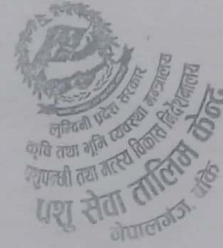 लुम्बिनी प्रदेश सरकार
कृषि तथा भूमि व्यवस्था मन्त्रालय
पशुपन्छी तथा मत्स्य विकास निर्देशनालय
पशु सेवा तालिम केन्द्र
नेपालगंज, बाँके